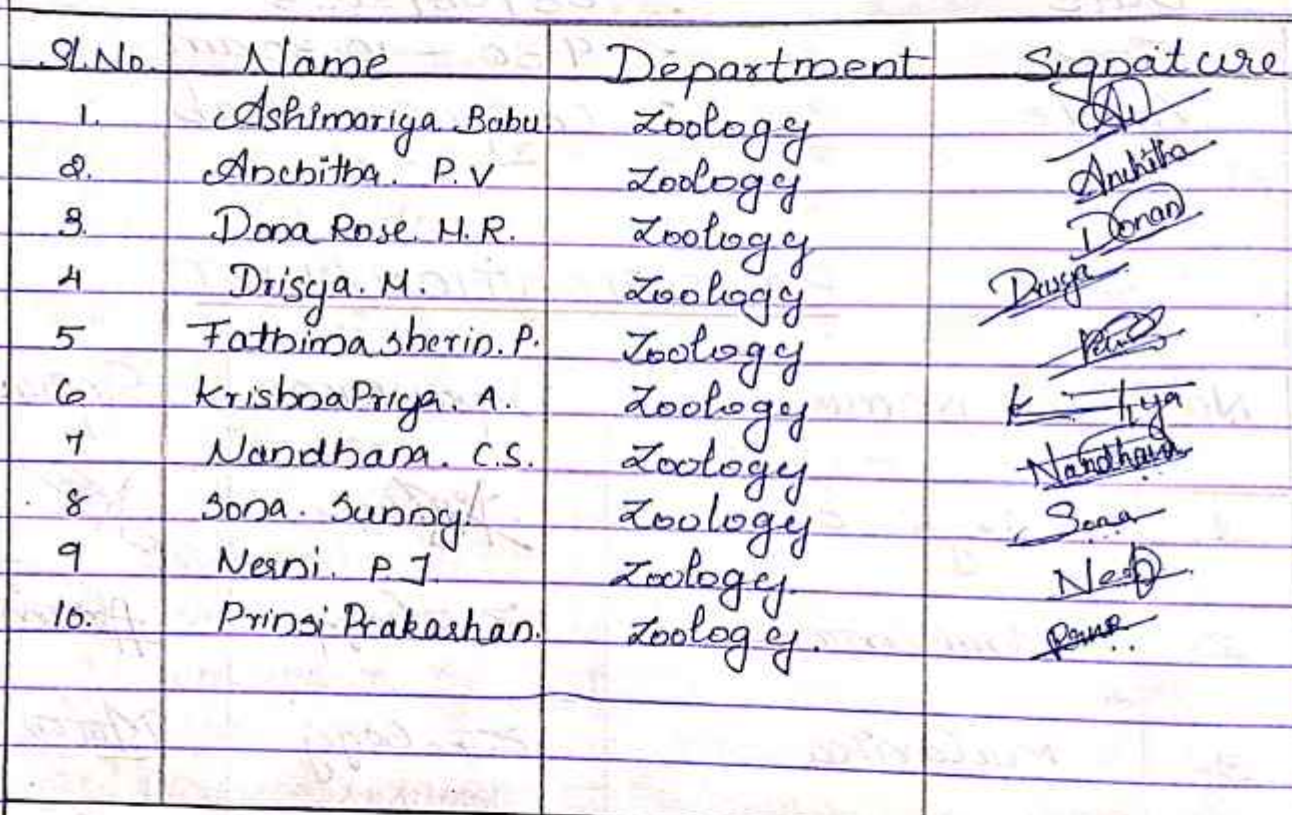 Sl.No. Name Department Signature
1. Ashimariya Babu Zoology
2. Anchitha. P.V Zoology Anchitha
3. Dona Rose. H.R. Zoology Donan
4 Drisya. M. Zoology Drisya
5 Fathima sherin. P. Zoology
6 KrishnaPriya. A. Zoology
7 Nandhana. C.S. Zoology Nandhana
8 Sona. Sunny. Zoology Sona
9 Nesni. P.J. Zoology.
10. Prinsi Prakashan. Zoology.